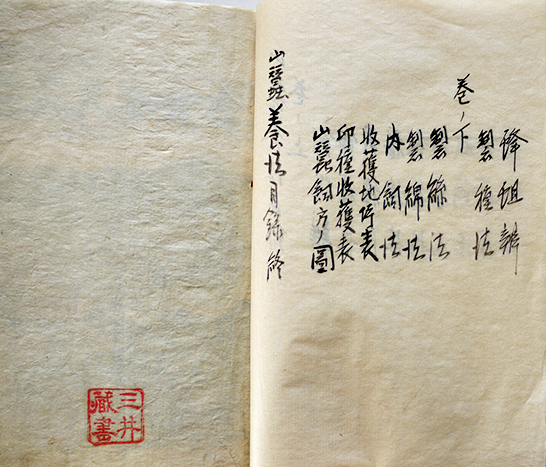 蜂蛆辨
製種法
巻ノ下
製絲法
製綿法
内飼法
收獲地坪表
卵種收獲表
山蠶飼方ノ圖
山蠶養法目録終
三井
藏書